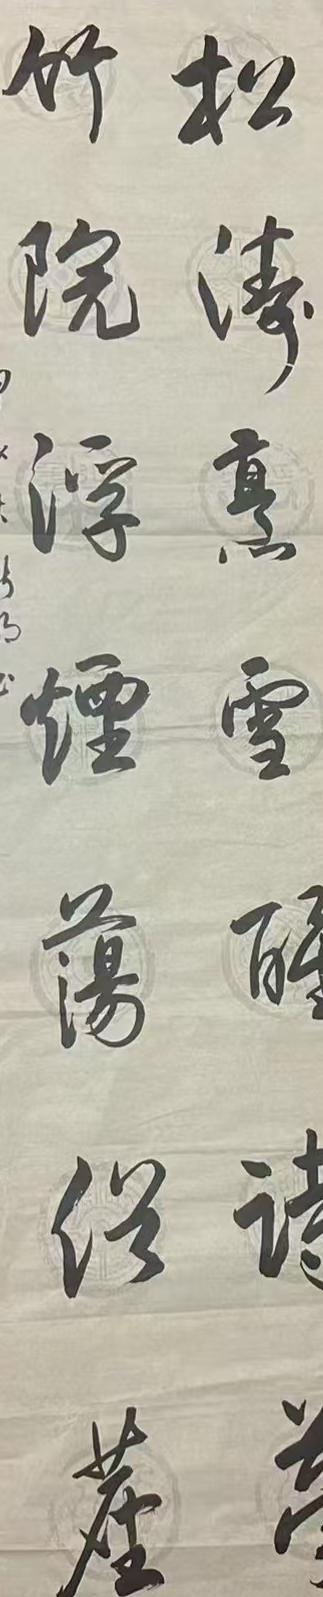 松涛烹雪醒詩夢
竹院浮煙蕩俗塵